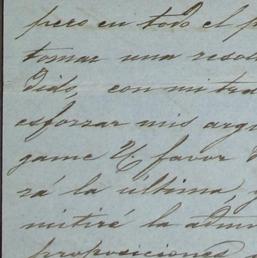 pero en todo el p
tomar una resol
dido, con mi tra
esforzar mis arg
game V. favor d
rá la última, y
mitiré la adm
proposiciones